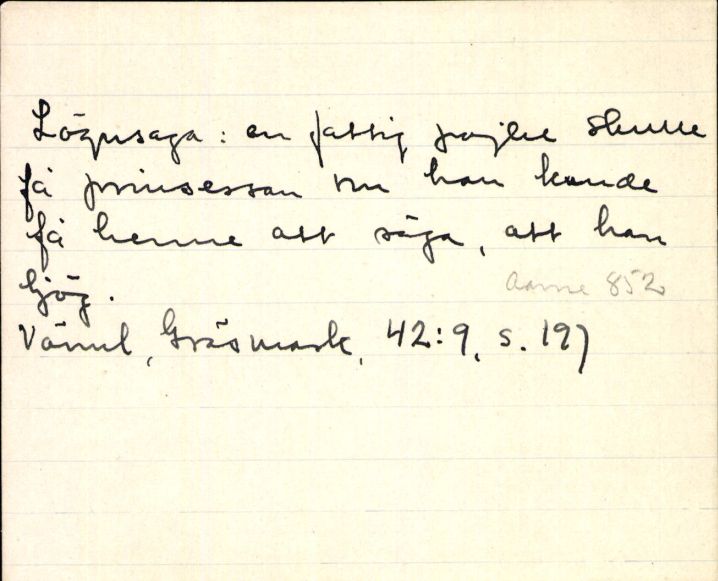 Lögnsaga: en fattig pojke skulle
få prinsessan om han kunde
få henne att säga, att han
ljög.
Aarne 852
Värml, Gräsmark, 42:9, s. 197